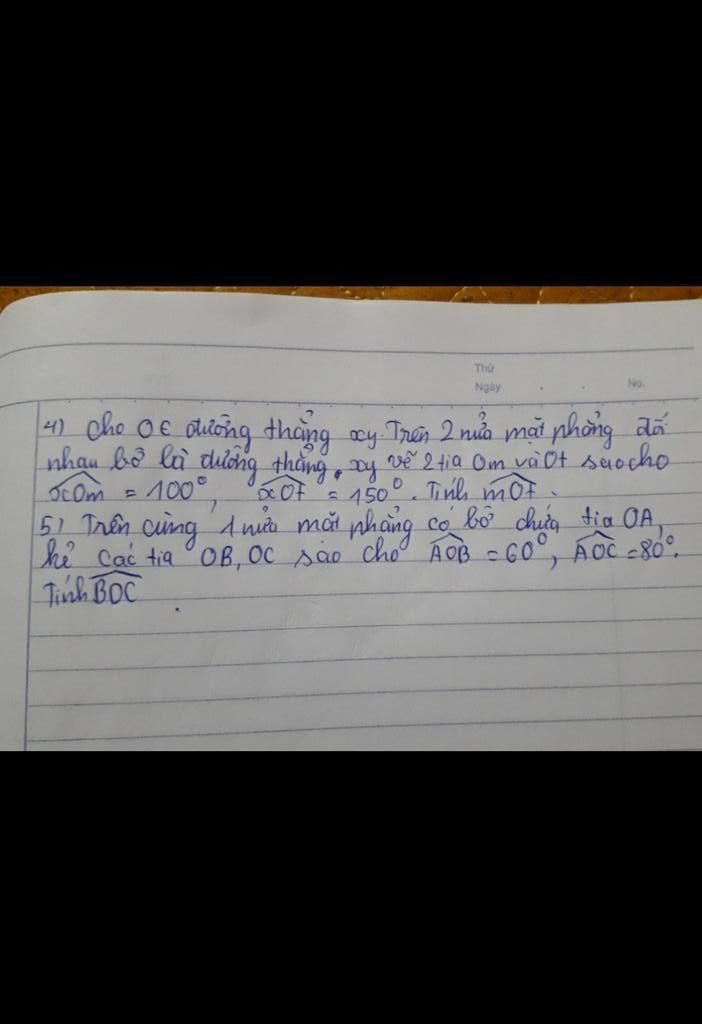 Thứ
Ngày . . No.
4) Cho O ∈ đường thẳng xy. Trên 2 nửa mặt phẳng đối
nhau bờ là đường thẳng xy vẽ 2 tia Om và Ot sao cho
xOm = 100°, xOt = 150°. Tính mOt.
5) Trên cùng 1 nửa mặt phẳng có bờ chứa tia OA,
kẻ các tia OB, OC sao cho AOB = 60°, AOC = 80°.
Tính BOC.